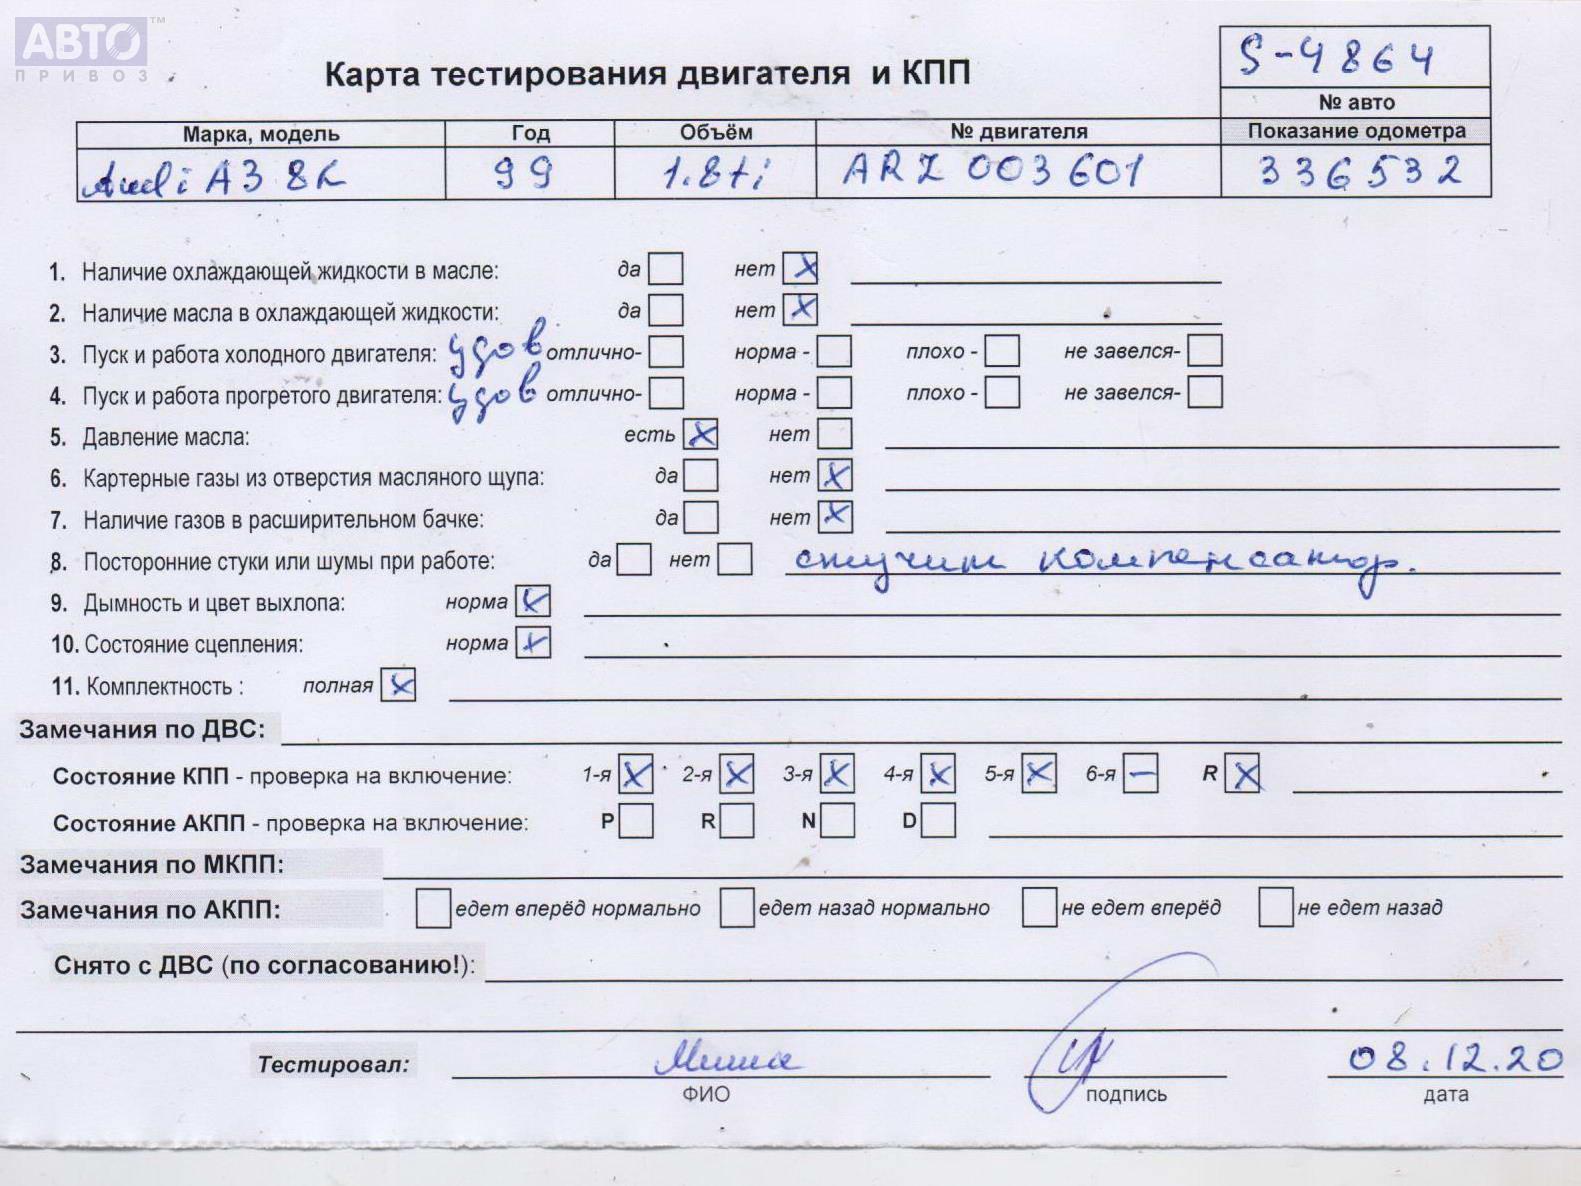 АВТО ™
ПРИВОЗ
Карта тестирования двигателя и КПП
S-4864
№ авто
Марка, модель Год Объём № двигателя Показание одометра
Audi A3 8L 99 1.8ti ARZ 003601 336532
1. Наличие охлаждающей жидкости в масле: да нет X
2. Наличие масла в охлаждающей жидкости: да нет X
3. Пуск и работа холодного двигателя: удов отлично- норма - плохо - не завелся-
4. Пуск и работа прогретого двигателя: удов отлично- норма - плохо - не завелся-
5. Давление масла: есть X нет
6. Картерные газы из отверстия масляного щупа: да нет X
7. Наличие газов в расширительном бачке: да нет X
8. Посторонние стуки или шумы при работе: да нет стучит компенсатор.
9. Дымность и цвет выхлопа: норма X
10. Состояние сцепления: норма X
11. Комплектность : полная X
Замечания по ДВС:
Состояние КПП - проверка на включение: 1-я X 2-я X 3-я X 4-я X 5-я X 6-я – R X
Состояние АКПП - проверка на включение: P R N D
Замечания по МКПП:
Замечания по АКПП: едет вперёд нормально едет назад нормально не едет вперёд не едет назад
Снято с ДВС (по согласованию!):
Тестировал: Миша 08.12.20
ФИО подпись дата